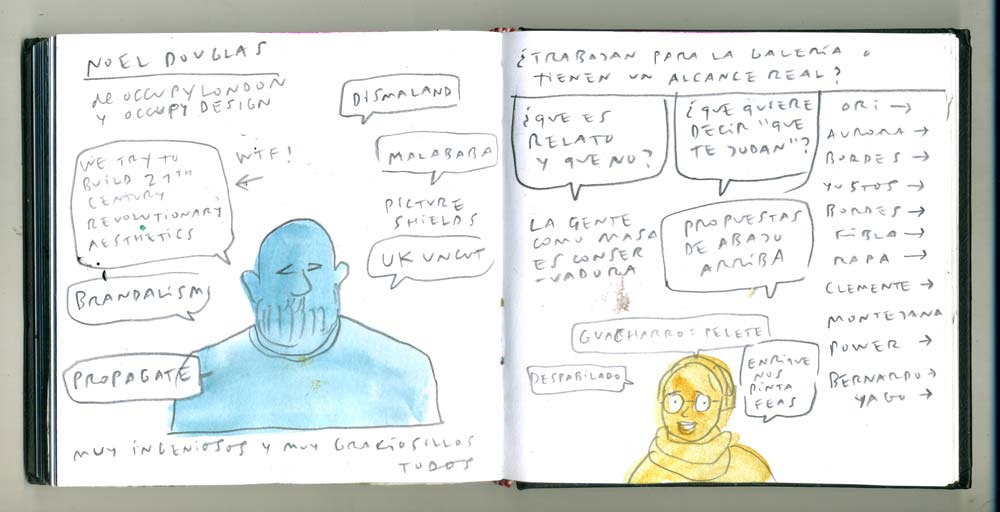 NOEL DOUGLAS
de OCCUPY LONDON
Y OCCUPY DESIGN
DISMALAND
WE TRY TO
BUILD 21TH
CENTURY
REVOLUTIONARY
AESTHETICS
WTF!
MALABABA
PICTURE
SHIELDS
UK UNCUT
BRANDALISM
PROPAGATE
MUY INGENIOSOS Y MUY GRACIOSILLOS
TODOS
¿TRABAJAN PARA LA GALERÍA o
TIENEN UN ALCANCE REAL?
¿QUE ES
RELATO
Y QUE NO?
¿QUE QUIERE
DECIR "QUE
TE JODAN"?
LA GENTE
COMO MASA
ES CONSER
-VADORA
PROPUESTAS
DE ABAJO
ARRIBA
GUACHARRO = PELETE
DESPABILADO
ENRIQUE
NOS
PINTA
FEAS
ORI →
AURORA →
BORDES →
YUSTOS →
BORDES →
FIBLA →
RAPA →
CLEMENTE →
MONTEJANA
POWER →
BERNARDO →
YAGO →